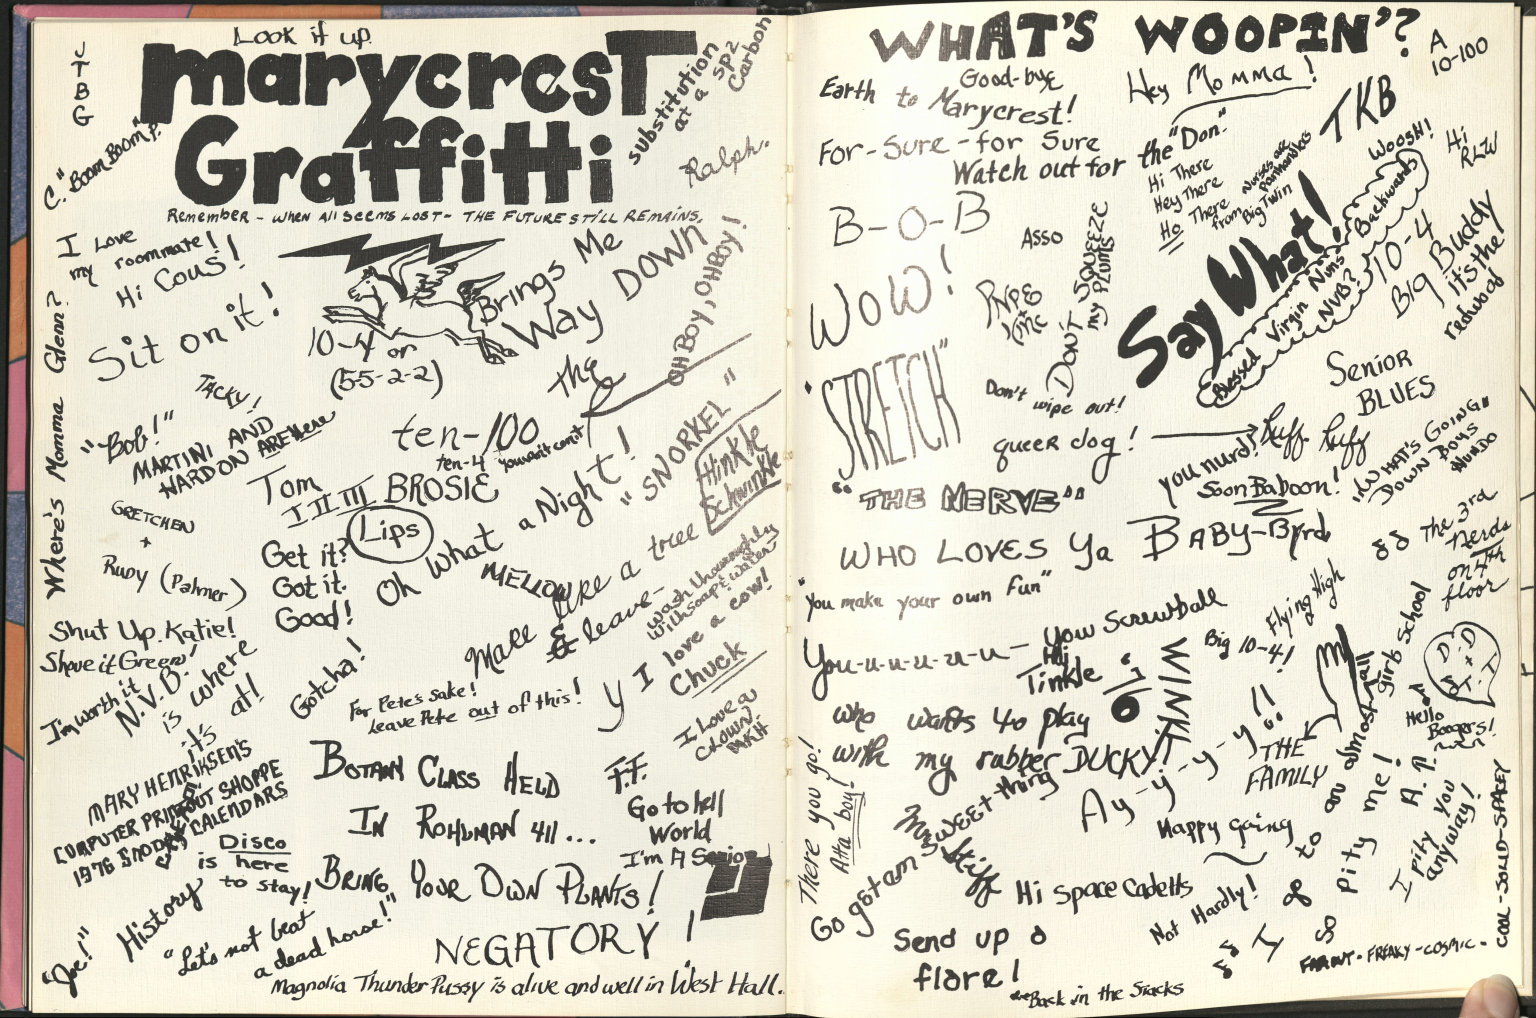 Look it up
marycrest
Graffitti
Remember - when all seems lost - the future still remains.
J
T
B
G
C. "Boom Boom" P.
substitution
at a sp2
Carbon
Ralph.
I love
my roommate!
Hi Cous!
Sit on it!
Where's Momma Glenn?
10-4 or
(5-5-2-2)
Brings Me
Way DOWN
OH BOY, OH BOY!
TACKY!
"Bob!"
MARTINI AND
HARDON ARE Here
the
ten-100
ten-4 you won't can't
Tom
I II III BROSIE
Lips
Oh What a Night!
"SNORKEL"
Hinkle
Schwinkle
GRETCHEN
+
Rudy (Palmer)
Get it?
Got it.
Good!
MELLOW
Make like a tree
& leave-
wash thouroughly
with soap & water
Shut Up. Katie!
Shave it Green!
I'm worth it
N.V.B.
is where
it's at!
Gotcha!
For Pete's sake!
leave Pete out of this!
y I love a cow!
Chuck
I Love a
CLOWN!
MARY HENRIKSEN'S
COMPUTER PRINTOUT SHOPPE
1976 SNOOPY CALENDARS
Disco
is here
to stay!
BOTANY CLASS HELD
IN ROHLMAN 411...
BRING YOUR OWN PLANTS!
F.F.
Go to hell
World
I'm A Senior
History
"Joe!"
"Let's not beat
a dead horse!"
NEGATORY!
Magnolia ThunderPussy is alive and well in West Hall.
WHAT'S WOOPIN'?
A
10-100
Earth to
Good-bye
Marycrest!
Hey Momma!
For-Sure-for Sure
Watch out for the "Don."
TKB
Woosh!
Hi
RLW
Hi There
Hey There
Ho There
from Big Twin
Nurses are
Panhandlers
B-O-B
Asso
DON'T SQUEEZE
my PLUMS
Say What!
Blessed Virgin Nuns Backwards
NVB?
10-4
Big Buddy
it's the
redwood
WOW!
Don't wipe out!
"STRETCH"
queer dog!
Ruff Ruff
Senior
BLUES
you nurd!
Soon Baboon!
"WHAT'S GOING"
DOWN BOYS
HUNDO
"THE NERVE"
WHO LOVES Ya BABY-Byrd
The 3rd
Nerds
on 4th
floor
"You make your own fun"
You-u-u-u-u-u- You Screwball
Hi
Tinkle
WINK!
Big 10-4!
Flying High
D.D
+
J.T
Hello
Boogers!
who wants to play
with my rubber DUCKY!
Ay-yi-y-y-y!!
THE
FAMILY
There you go!
Atta boy!
My sweet thing
Go gstam
Stiff
Happy Going
Hi Space Cadetts
Not Hardly!
to an almost all girls school
Pity me!
A.P.
I pity you
anyway!
COOL-SOLID-SPACEY
Send up a
flare!
Back in the Stacks
FAR OUT - FREAKY - COSMIC -